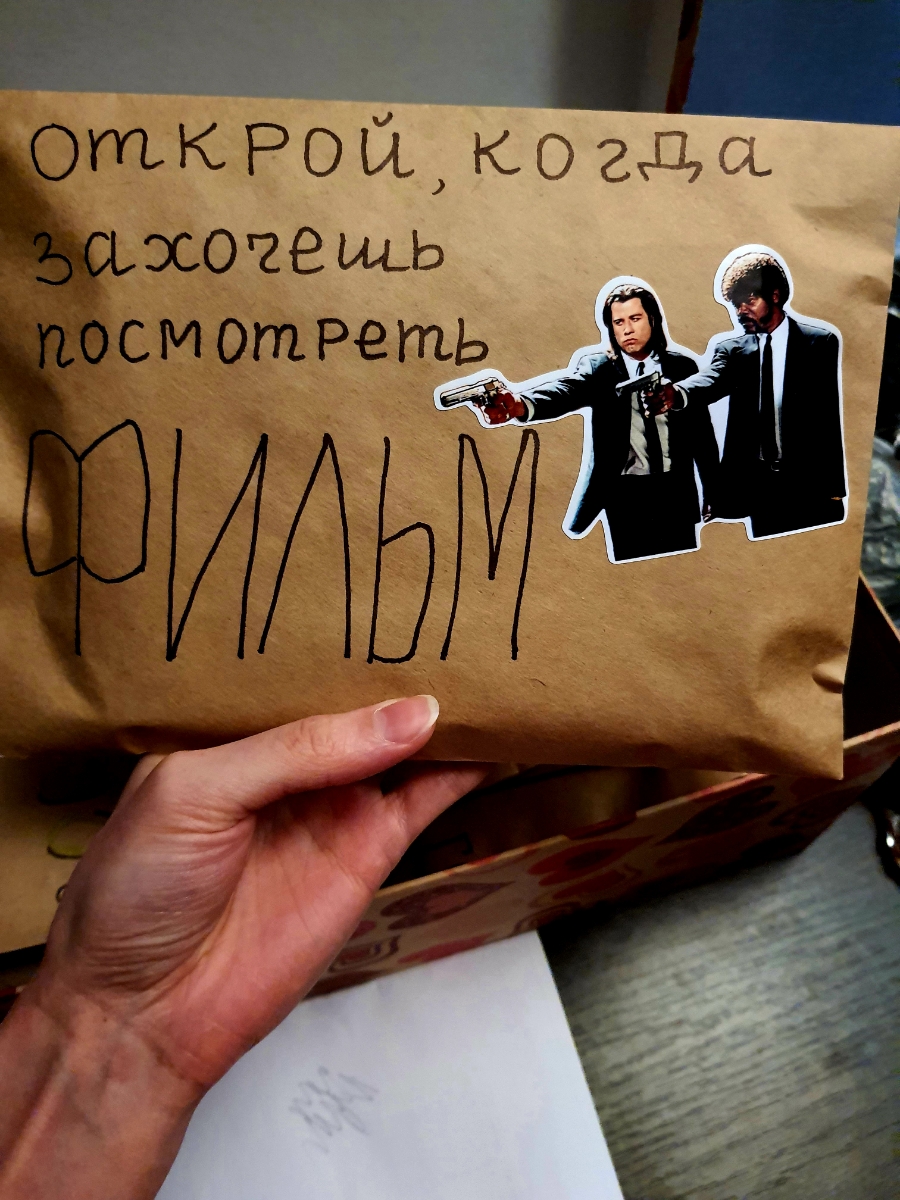 открой, когда
захочешь
посмотреть
ФИЛЬМ